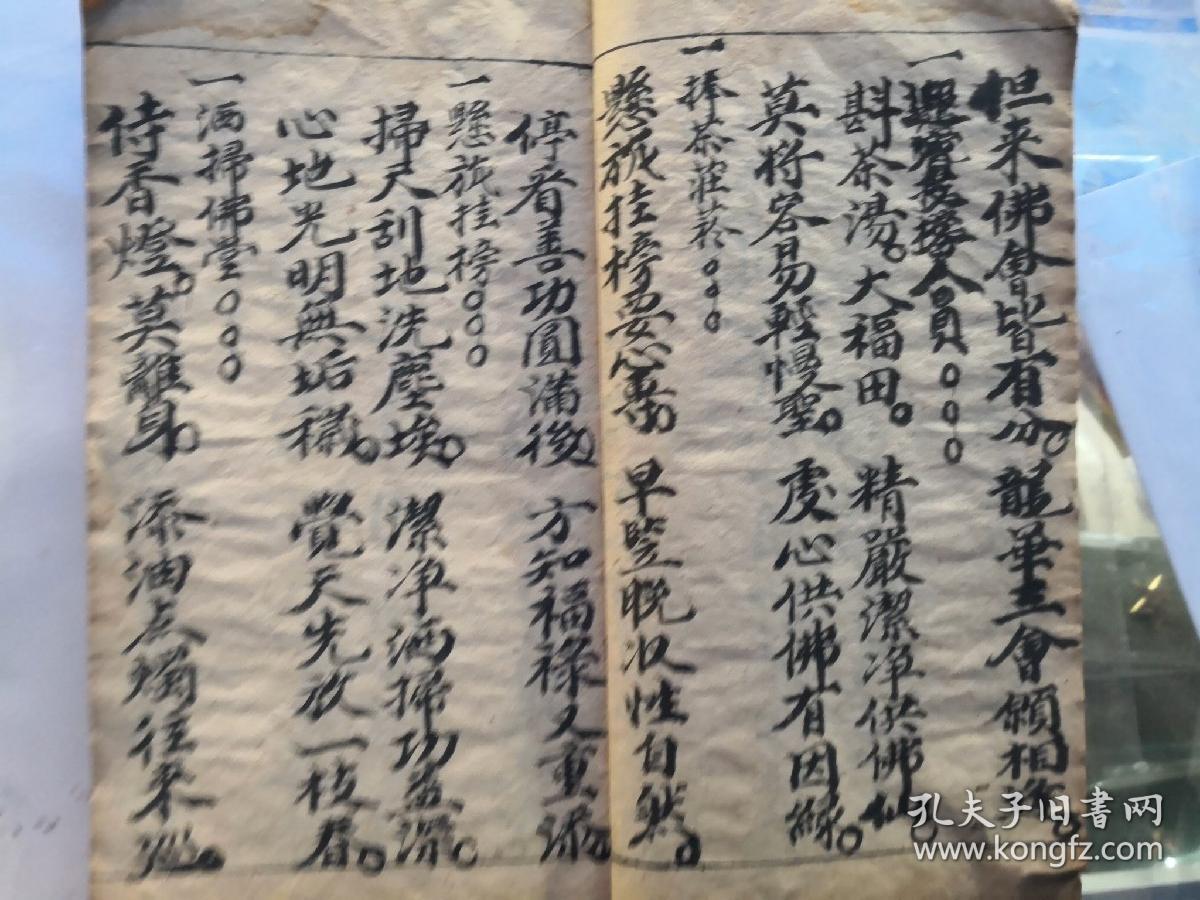 但来佛會皆有分。龍華三會願相逢。
一迎賓接人員○○○
斟茶湯。大福田。精嚴潔净供佛仙。
莫将容易輕慢聖。虔心供佛有因緣。
一捧茶莊○○○
懸旂挂榜要心專。早竖晚收性自然。
停看善功圓滿後。方知福祿又重添。
一懸旂挂榜○○○
掃尺刮地洗塵埃。潔净洒掃功益深。
心地光明無垢穢。覺天先放一枝春。
一洒掃佛堂○○○
侍香燈。莫離身。添油点燭往来巡。
孔夫子旧书网
www.kongfz.com